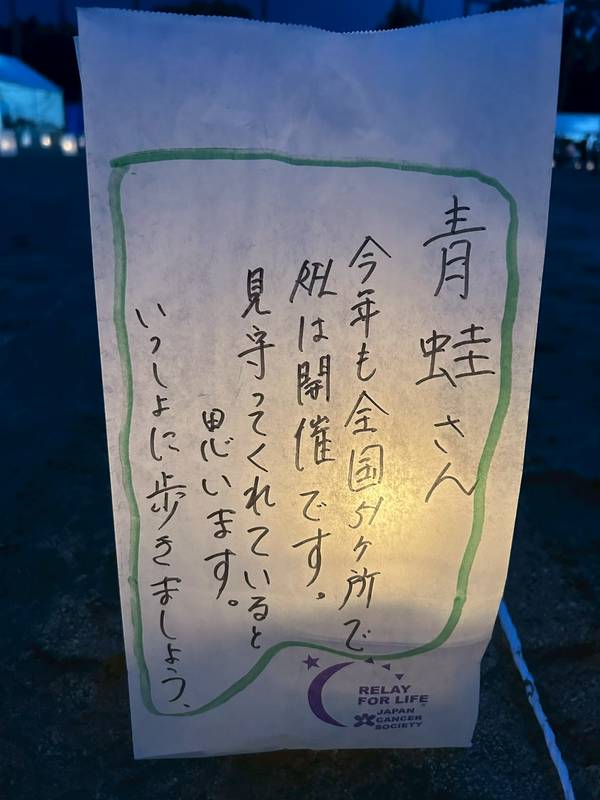 青蛙さん
今年も全国51ケ所で
RFLは開催です。
見守ってくれていると
思います。
いっしょに歩きましょう、
RELAY
FOR LIFE
JAPAN
CANCER
SOCIETY